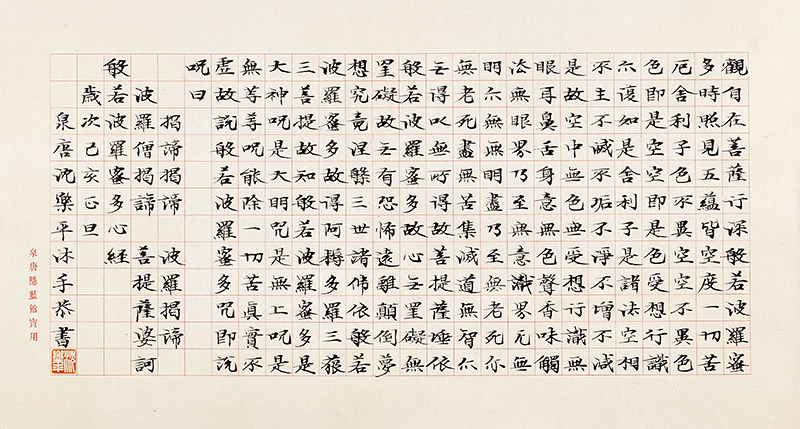 觀自在菩薩行深般若波羅蜜
多時照見五蘊皆空度一切苦
厄舍利子色不異空空不異色
色即是空空即是色受想行識
亦復如是舍利子是諸法空相
不生不滅不垢不淨不增不減
是故空中無色無受想行識無
眼耳鼻舌身意無色聲香味觸
法無眼界乃至無意識界无無
明亦無無明盡乃至無老死亦
無老死盡無苦集滅道無智亦
无得以無所得故菩提薩埵依
般若波羅蜜多故心无罣礙無
罣礙故无有恐怖遠離顛倒夢
想究竟涅槃三世諸佛依般若
波羅蜜多故得阿耨多羅三藐
三菩提故知般若波羅蜜多是
大神呪是大明咒是無上呪是
無等等呪能除一切苦真實不
虛故說般若波羅蜜多咒即說
呪曰
揭諦揭諦 波羅揭諦
波羅僧揭諦 菩提薩婆訶
般若波羅蜜多心經
歲次己亥正旦
泉唐沈樂平沐手恭書
泉唐隱藍館寶用